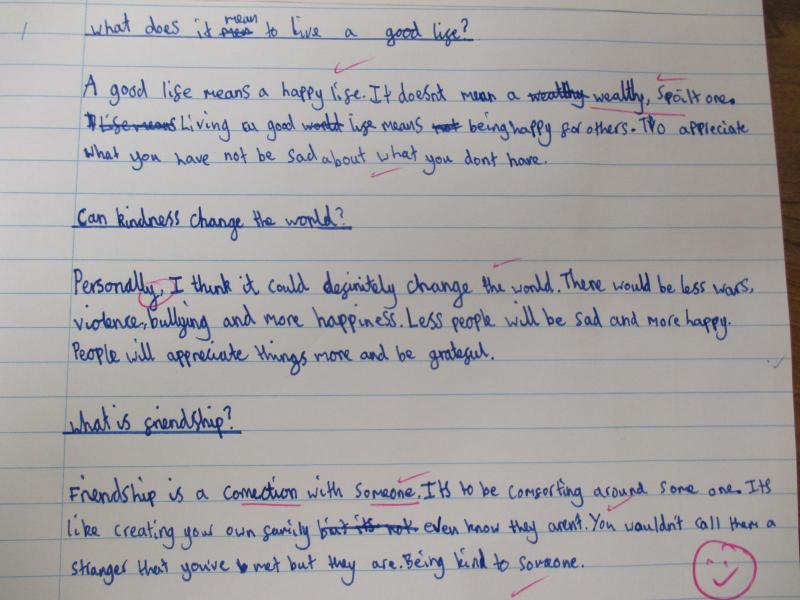 What does it mean to live a good life?
A good life means a happy life. It doesnt mean a wealthy, spoilt one.
Living a good life means being happy for others. To appreciate
what you have not be sad about what you dont have.
Can kindness change the world?
Personally, I think it could definitely change the world. There would be less wars,
violence, bullying and more happiness. Less people will be sad and more happy.
People will appreciate things more and be grateful.
What is friendship?
Friendship is a connection with someone. Its to be comforting around some one. Its
like creating your own family even know they arent. You wouldn't call them a
stranger that you've met but they are. Being kind to someone.